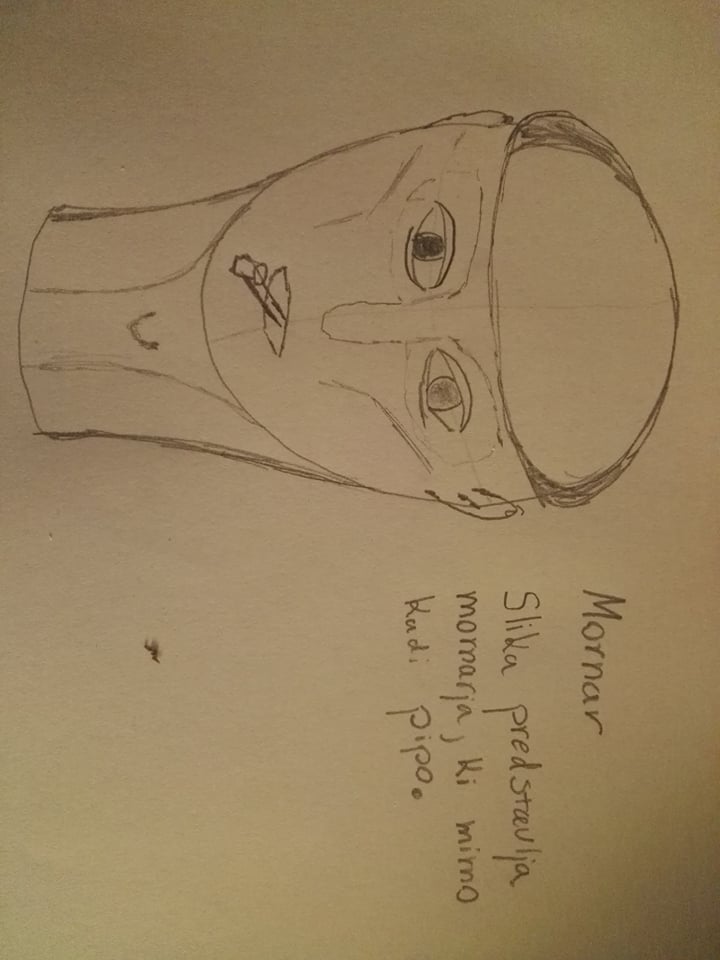 Mornar
Slika predstavlja
mornarja, ki mirno
kadi pipo.